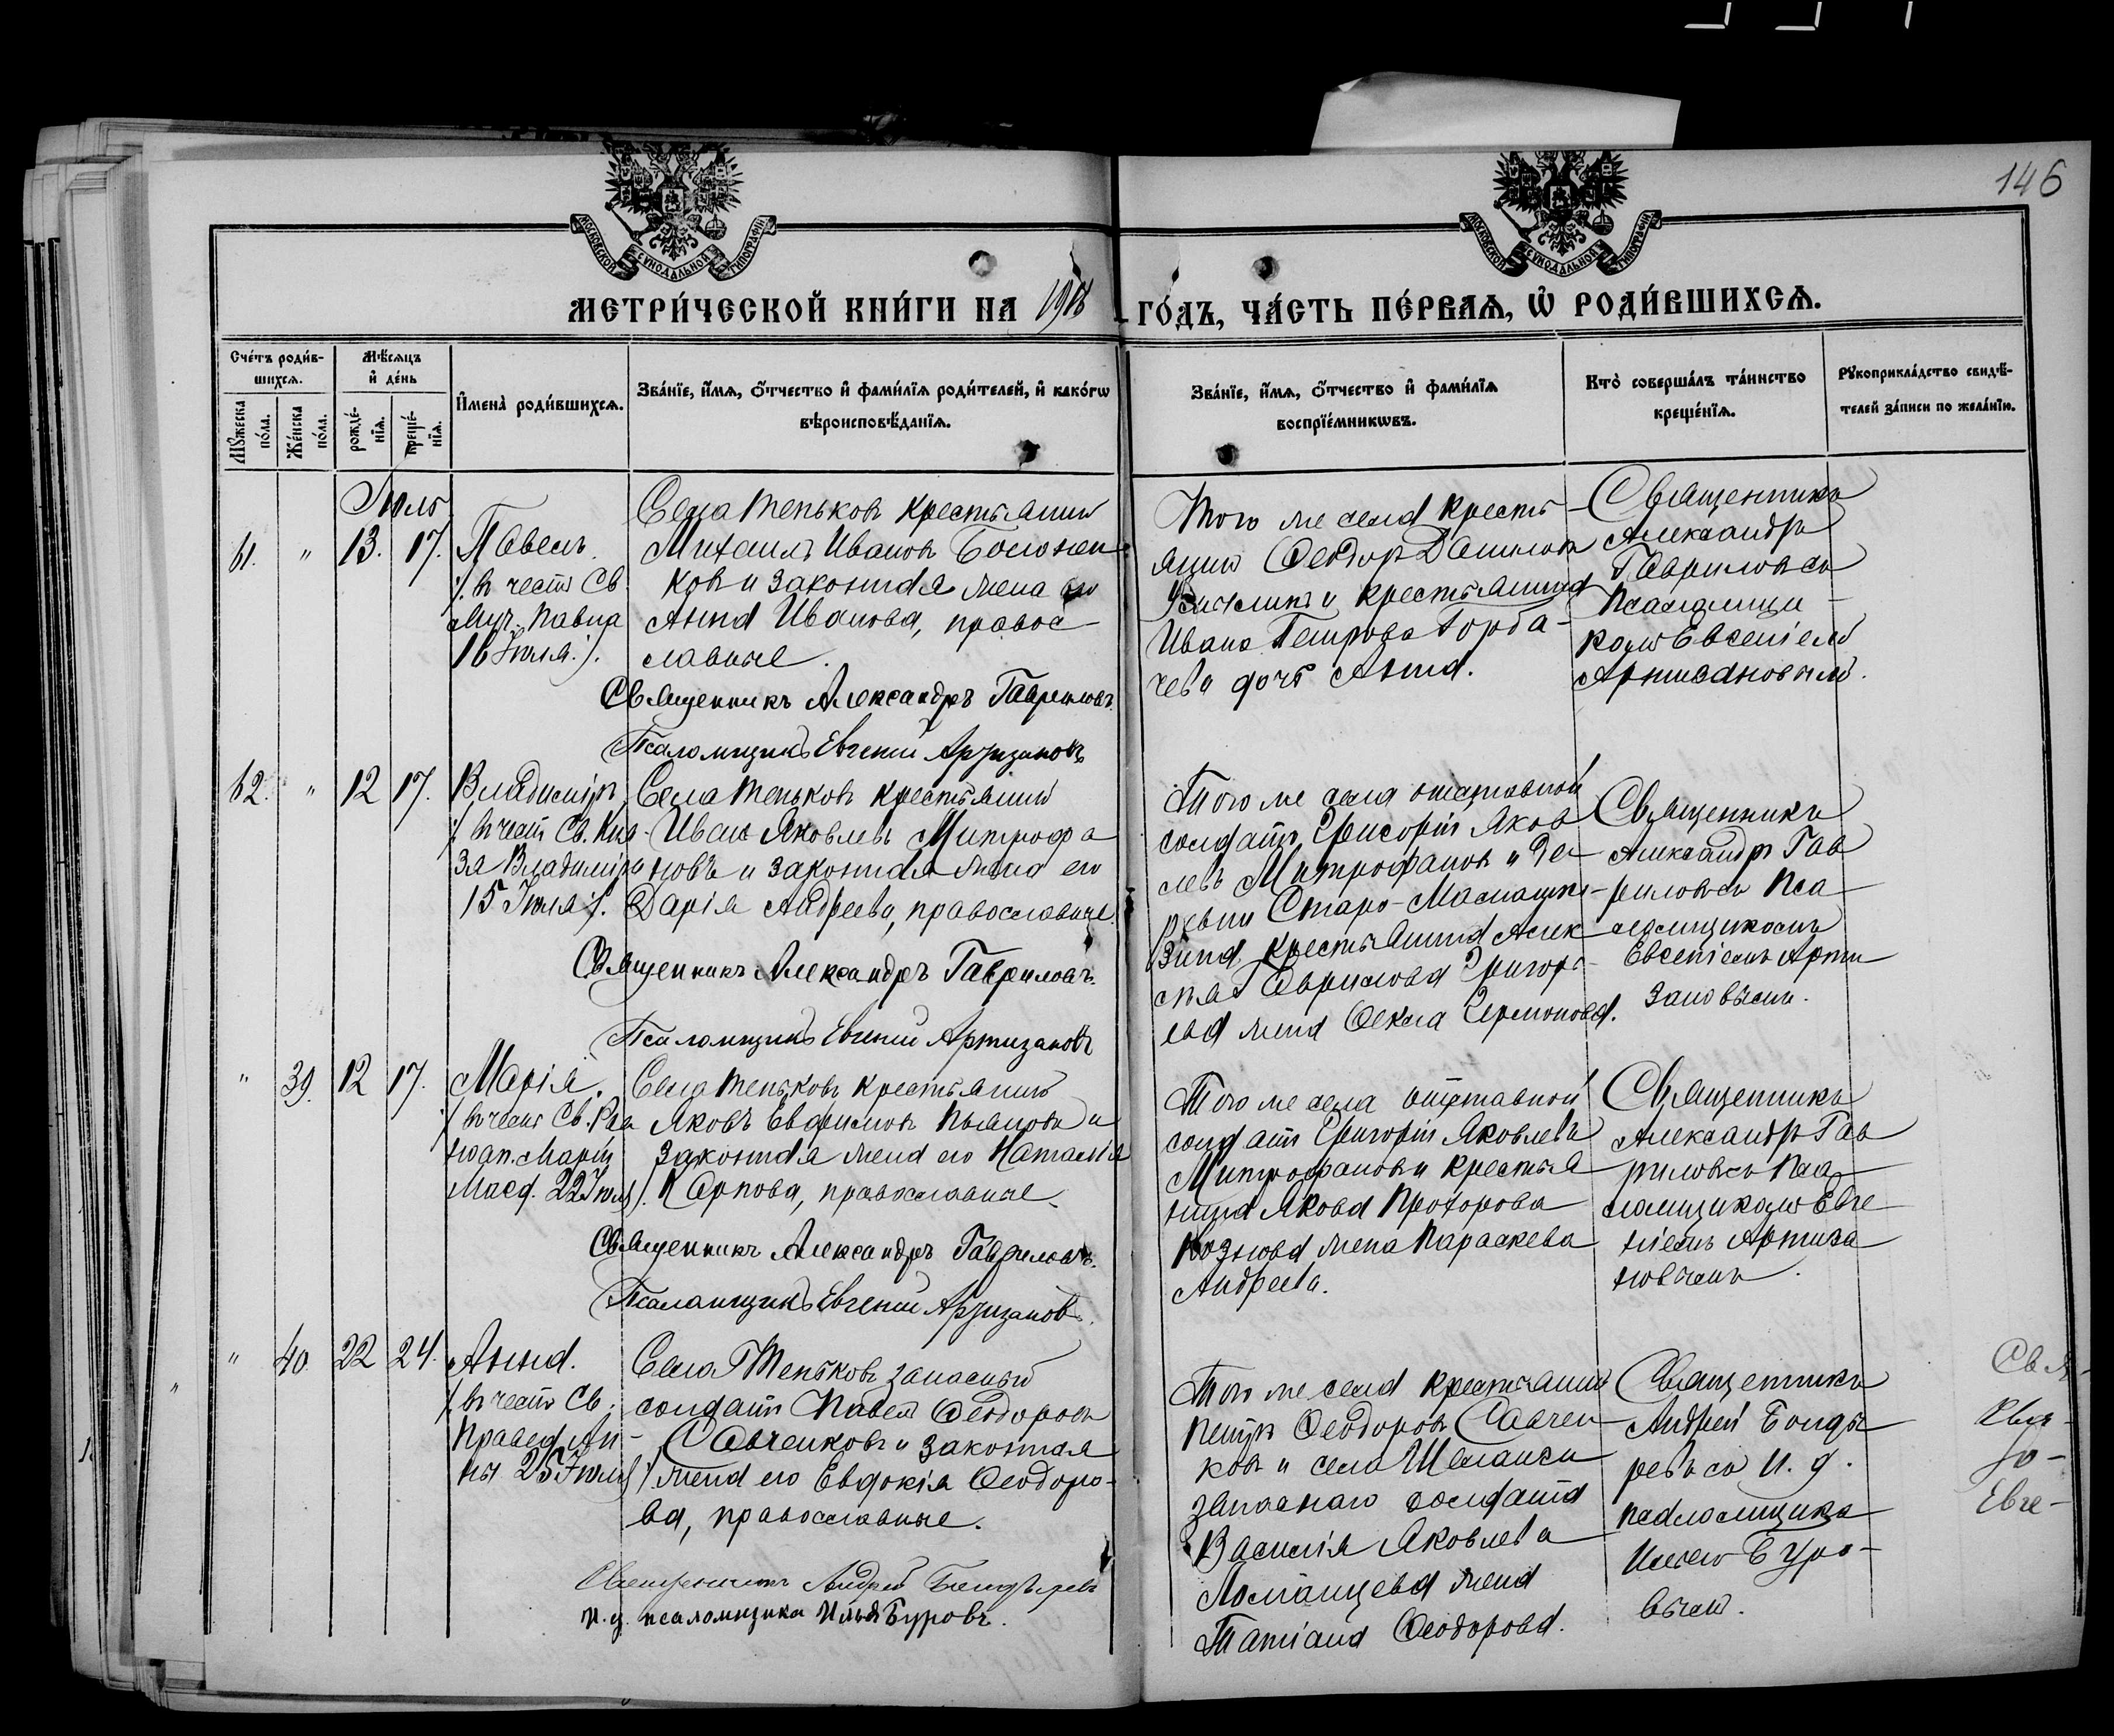 146
МОСКОВСКОЙ СУНОДАЛЬНОЙ ТИПОГРАФІИ
МОСКОВСКОЙ СУНОДАЛЬНОЙ ТИПОГРАФІИ
МЕТРИ́ЧЕСКОЙ КНИ́ГИ НА ГО́ДЪ, ЧА́СТЬ ПЕ́РВАѦ, Ѽ РОДИ́ВШИХСѦ.
Счéтъ роди́в-
шихсѧ.
Мꙋжеска по́ла.
Же́нска по́ла.
Мѣ́сѧцъ
и҆ де́нь
рожде́-
нїѧ.
креще́-
нїѧ.
И҆мена̀ роди́вшихсѧ.
Зва́нїе, и҆́мѧ, ѻ҆́тчество и҆ фами́лїѧ роди́телей, и҆ како́гѡ
вѣроисповѣ́данїѧ.
Зва́нїе, и҆́мѧ, ѻ҆́тчество и҆ фами́лїѧ
воспрїе́мникѡвъ.
Кто̀ соверша́лъ та́инство
креще́нїѧ.
Рꙋкоприкла́дство свидѣ́-
телей за́писи по жела́нїю.
Іюль
61. " 13. 17.
Павелъ
/. въ честь Св
муч. Павла
16 Іюля./.
Села Теньковъ крестьянинъ
Михаилъ Ивановъ
ковъ и законная жена его
Анна Иванова, правос-
лавные.
Священникъ Александръ Гавриловъ.
Псаломщикъ Евгеній Артизановъ
Того же села кресть-
янинъ Ѳеодоръ Даниловъ
и крестьянина
Ивана Петрова Горба-
чева дочь Анна.
Священникъ
Александръ
Гавриловъ съ
псаломщи-
комъ Евгеніемъ
Артизановымъ.
62. " 12 17.
Владиміръ
/. въ честь Св. Кня-
за Владиміра
15 Іюля/.
Села Теньковъ крестьянинъ
Иванъ Яковлевъ Митрофа
новъ и законная жена его
Дарія Андреева, православные.
Священникъ Александръ Гавриловъ.
Псаломщикъ Евгеній Артизановъ
Того же села отставной
солдатъ Григорій Яков
левъ Митрофановъ и де-
ревни Старо-
крестьянина Алек-
Гаврилова Григорь-
ева жена Ѳекла
Священникъ
Александръ Гав
риловъ съ пса
ломщикомъ
Евгеніемъ Арти
зановымъ.
" 39. 12 17.
Марія.
/. въ честь Св. Рав
ноап. Маріи
Магд. 22 Іюля/.
Села Теньковъ крестьянинъ
Яковъ Евфимовъ Пьяновъ и
законная жена его Наталія
Карпова, православные.
Священникъ Александръ Гавриловъ.
Псаломщикъ Евгеній Артизановъ.
Того же села отставной
солдатъ Григорій Яковлевъ
Митрофановъ и крестья
нина Якова Прохорова
жена Параскева
Андреева.
Священникъ
Александръ Гав
риловъ съ пса
ломщикомъ Евге
ніемъ Артиза
новымъ.
" 40. 22 24.
Анна.
/. въ честь Св.
Правед. Ан-
ны 25 Іюля/.
Села Теньковъ запасный
солдатъ Павелъ Ѳеодоровъ
Савченковъ и законная
жена его Евдокія Ѳеодоро-
ва, православные.
Священникъ Андрей Бондыревъ
И. д. псаломщика Илья Буровъ.
Того же села крестьянинъ
Петръ Ѳеодоровъ Савчен-
ковъ и села Шеланги
запаснаго солдата
Василія Яковлева
жена
Татіана Ѳеодорова.
Священникъ
Андрей Бонды
ревъ съ И. д.
псаломщика
Ильею Буро-
вымъ.
Евге-